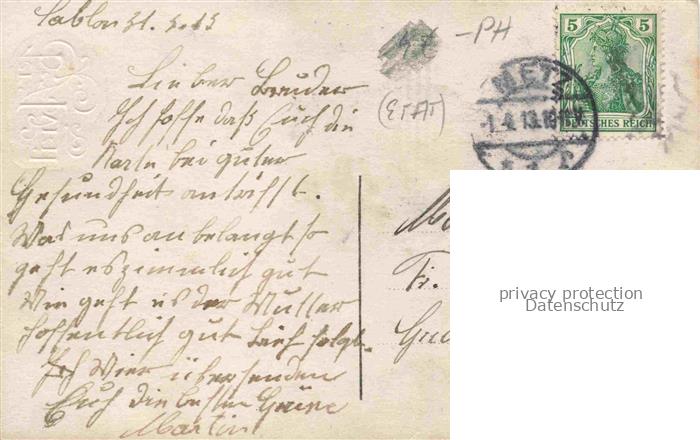 Sablon 31. 3. 13
-PH
Lieber Bruder
(ETAT)
Ich hoffe daß Euch die
Karte bei guter
Gesundheit antrifft.
Was uns anbelangt so
geht es ziemlich gut
Wie geht es der Mutter
hoffentlich gut Brief folgt.
Wier übersenden
Euch die besten Grüße
Martin
5 5
DEUTSCHES REICH
METZ
1.4.13
Fr.
privacy protection
Datenschutz